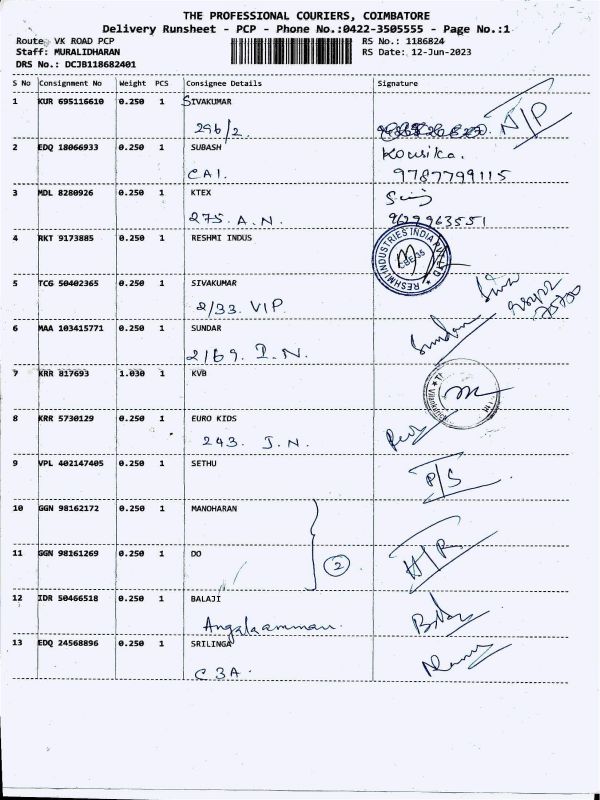 THE PROFESSIONAL COURIERS, COIMBATORE
Delivery Runsheet - PCP - Phone No.:0422-3505555 - Page No.:1
Route: VK ROAD PCP RS No.: 1186824
Staff: MURALIDHARAN RS Date: 12-Jun-2023
DRS No.: DCJB118682401
S No Consignment No Weight PCS Consignee Details Signature
1 KUR 695116610 0.250 1 SIVAKUMAR N/P
296/2.
2 EDQ 18066933 0.250 1 SUBASH Kousika.
CAI. 9787799115
3 MDL 8280926 0.250 1 KTEX
275. A.N. 9629963551
4 RKT 9173885 0.250 1 RESHMI INDUS RESHMI INDUSTRIES INDIA PVT LTD CBE-35
5 TCG 50402365 0.250 1 SIVAKUMAR Siva
2/33 VIP
6 MAA 103415771 0.250 1 SUNDAR Sundar
2/69. I.N.
7 KRR 817693 1.030 1 KVB
8 KRR 5730129 0.250 1 EURO KIDS
243. J.N.
9 VPL 402147405 0.250 1 SETHU P/S
10 GGN 98162172 0.250 1 MANOHARAN
11 GGN 98161269 0.250 1 DO 2 H/R
12 IDR 50466518 0.250 1 BALAJI
Angalaamman.
13 EDQ 24568896 0.250 1 SRILINGA
C3A.